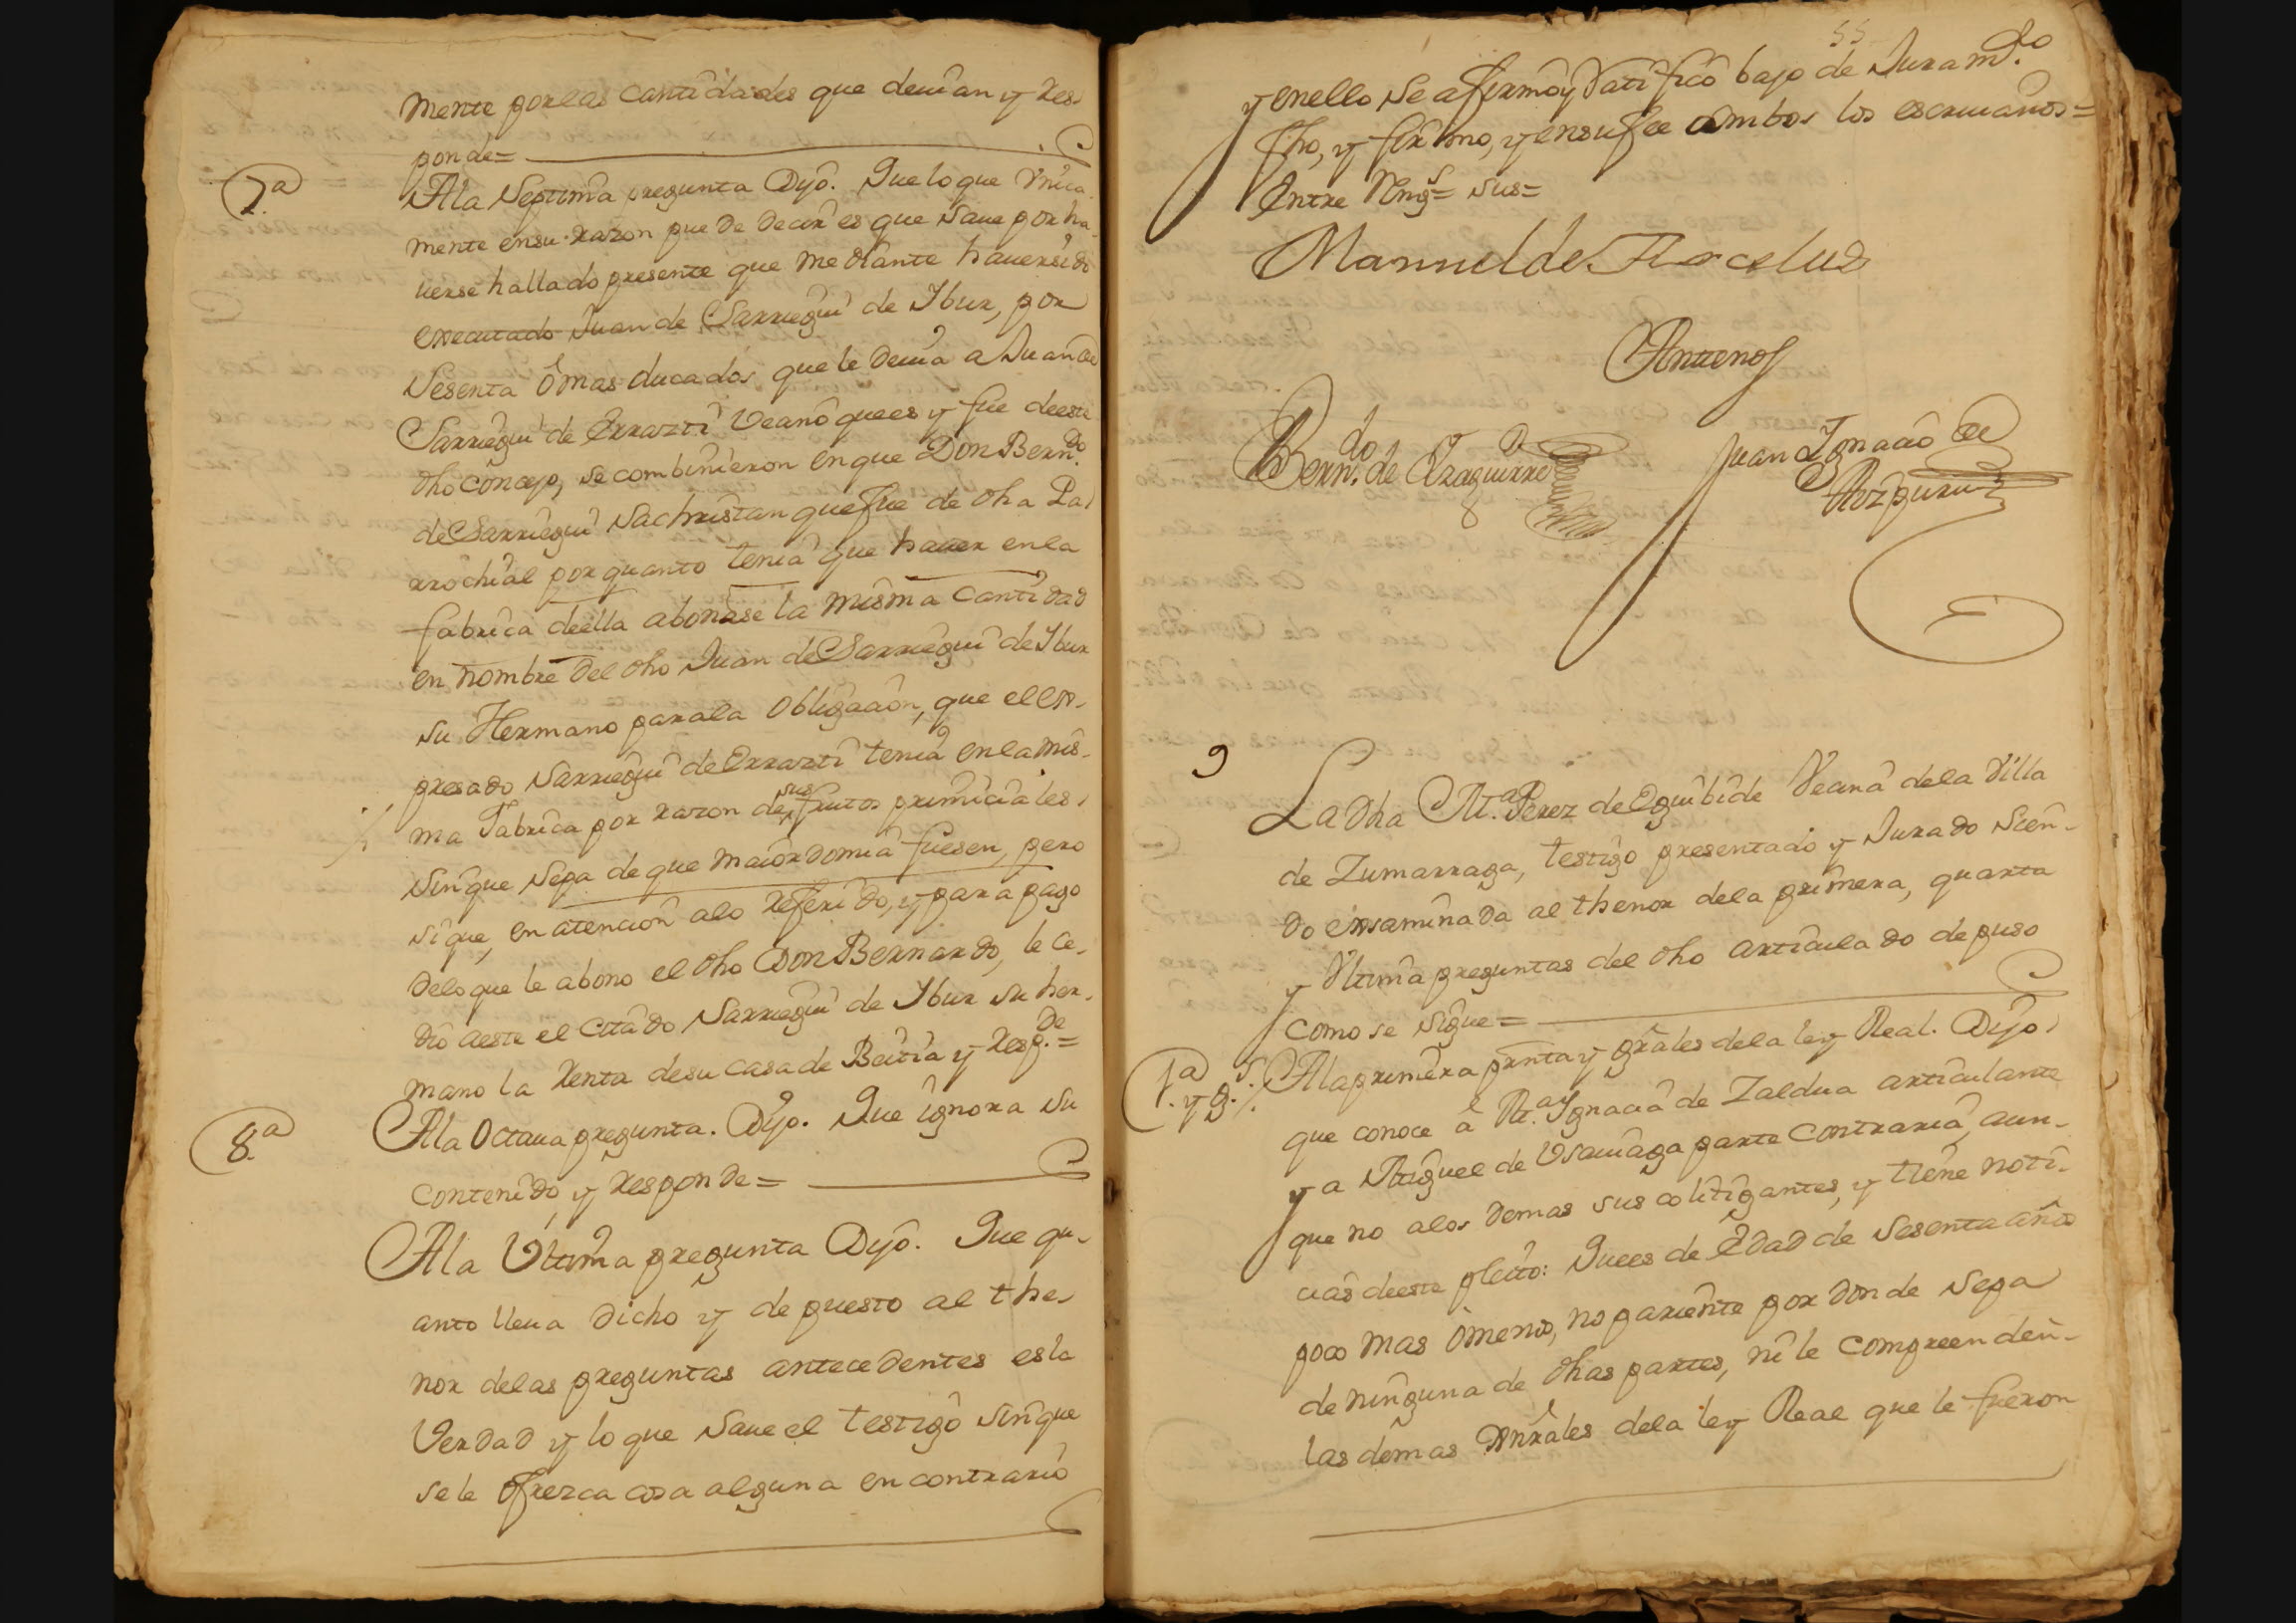 mente por las cantidades que devian y Res-
ponde=
7ª
A la Septima pregunta Dijo. Que lo que Vnica
mente en su razon puede decir es que save por ha-
verse hallado presente que mediante haversido
executado Juan de Sarriegui de Ybur, por
sesenta ò mas ducados que le devia a Juan de
Sarriegui de Errazti Vecino que es y fue de este
dho concejo, se combinieron en que Don Bern.do
de Sarriegui Sachristan que fue de dha Pa-
rrochial por quanto tenia que haver en la
fabrica de ella abonase la misma cantidad
en nombre del dho Juan de Sarriegui de Ybur
su Hermano para la obligacion, que el ex-
presado Sarriegui de Errazti tenia en la mis-
ma Fabrica por razon de sus frutos primiciales,
sin que sepa de que maiordomia fuesen, pero
si que, en atencion alo referido, y para pago
delo que le abono el dho Don Bernardo, le ce-
dio a este el citado Sarriegui de Ybur su her-
mano la Renta de su casa de Beitia y Resp.de=
8ª
A la Octava pregunta. Dijo. Que ignora su
contenido, y Responde=
A la Vltima pregunta Dijo. Que qu-
anto lleva dicho y depuesto al the-
nor delas preguntas antecedentes es la
Verdad y lo que save el testigo sin que
se le ofrezca cosa alguna en contrario
55
y en ello se afirmò y ratificò bajo de Juram.to
fho, y firmo, y en su fee ambos los escrivanos=
Entre Rng.s= sus=
Manuel de Arcelus
Antenos
Bern.do de Yzaguirre
Juan Ygnacio de
Aozpuru
9
La dha M.a Perez de Eguibide Vecina de la Villa
de Zumarraga, testigo presentado y Jurado sien-
do examinada al thenor dela primera, quarta
y Vltima preguntas del dho articulado depuso
como se sigue=
1ª y g.s
A la primera prnta y grales dela ley Real. Dijo,
que conoce à M.a Ygnacia de Zaldua articulante
y a Miguel de Vsauiaga parte contraria, aun-
que no alos demas sus colitigantes, y tiene noti-
cias de este pleito: Que es de Edad de sesenta años
poco mas òmenos, no pariente por donde sepa
de ninguna de dhas partes, ni le compreenden-
las demas gnrales dela ley Real que le fueron